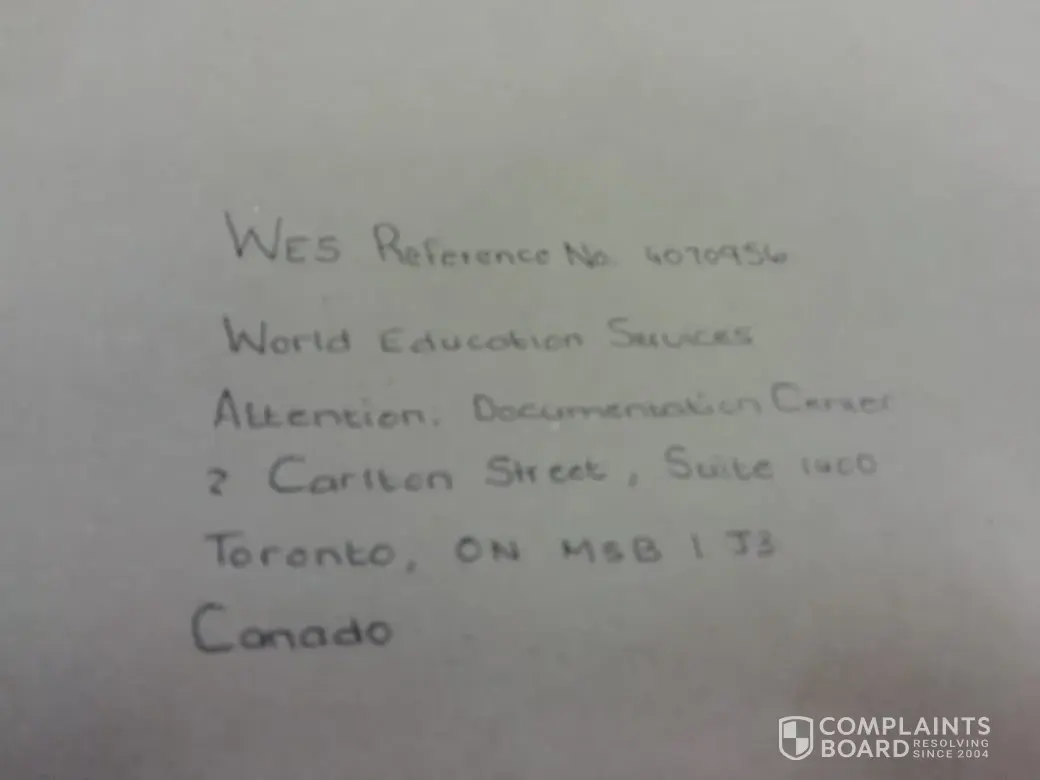 WES Reference No. 4070956
World Education Services
Attention. Documentation Center
2 Carlton Street, Suite 1400
Toronto, ON M5B 1J3
Canada
COMPLAINTS
BOARD RESOLVING
SINCE 2004